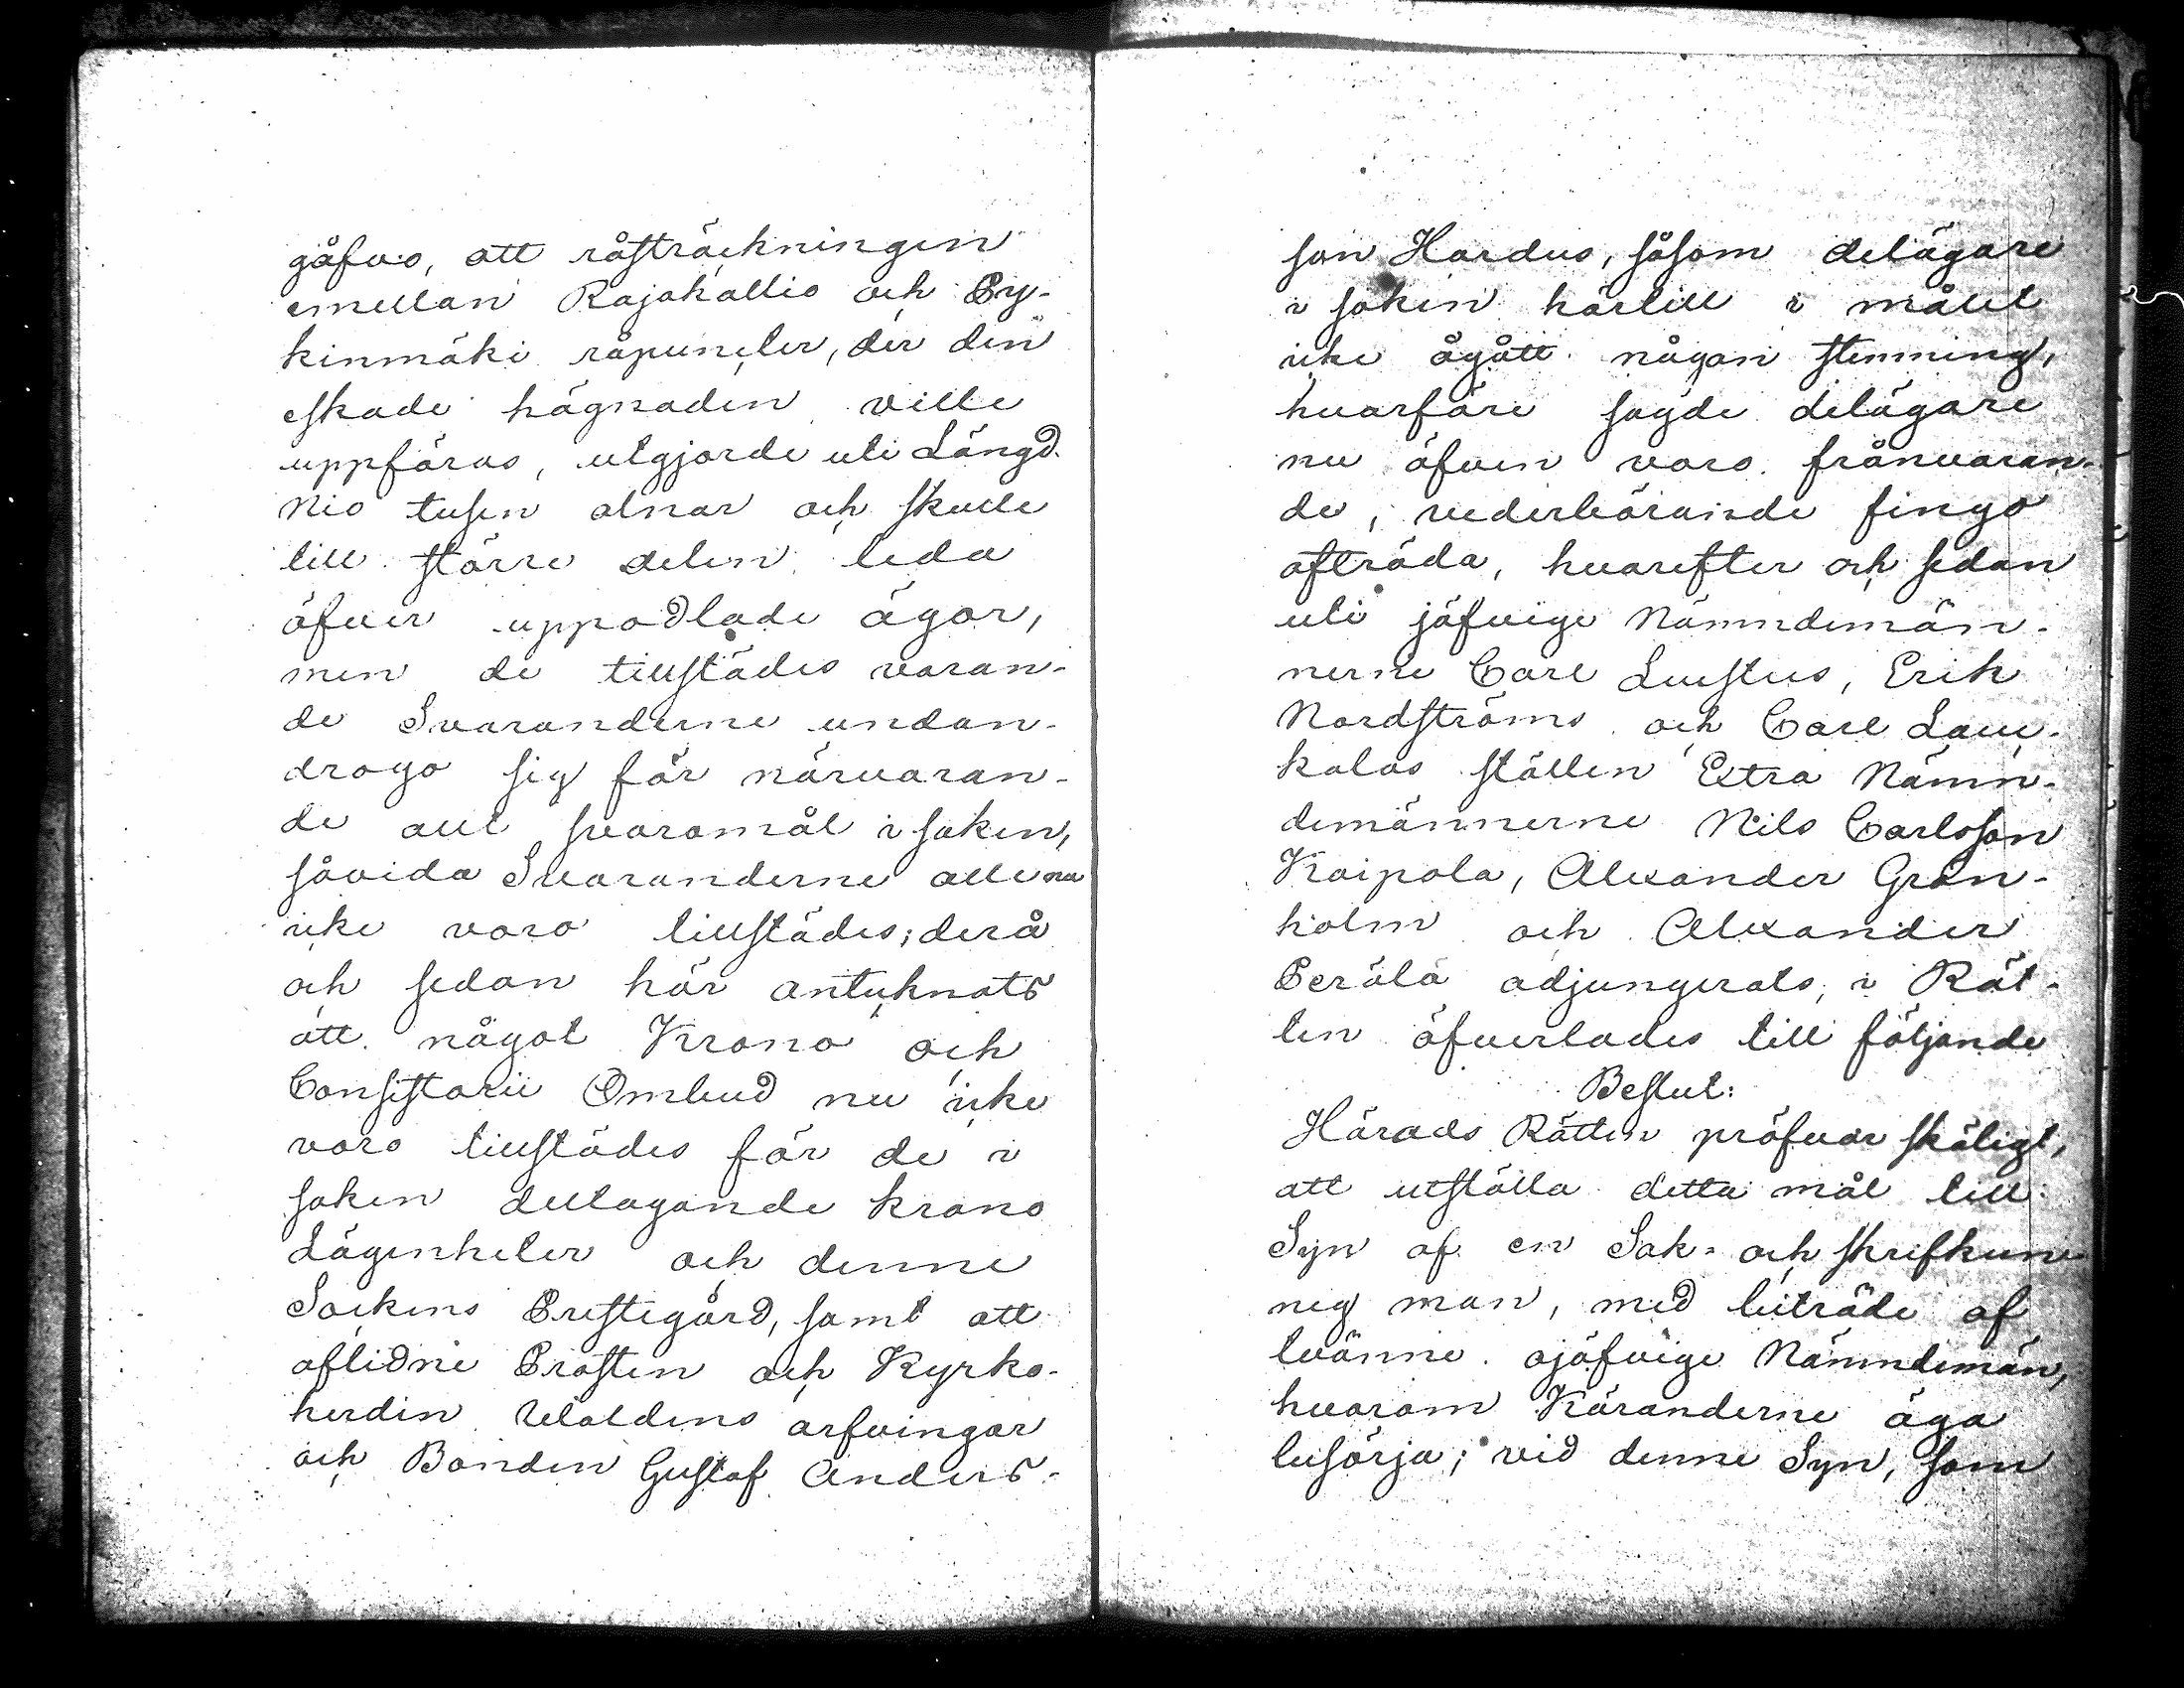 gåfvo, att råsträckningen
emellan Rajakallio och Py-
kinmäki råpuncter, der den
eskade hägnaden ville
uppföras, utgjorde uti Längd
Nio tusen alnar och skulle
till större delen leda
öfver uppodlade ägor,
men de tillstädes varan-
de Svaranderne undan-
drogo sig för närvaran-
de allt svaromål i saken,
såvida Svaranderne alle nu
icke voro tillstädes; derå
och sedan här antecknats
att något Krono och
Consistorii Ombud nu icke
voro tillstädes för de i
saken deltagande krono
Lägenheter och denne
Sockens Prestegård, samt att
aflidne Prosten och Kyrko-
herden Ulaldens arfvingar
och Bonden Gustaf Anders-
son Hardus, såsom delägare
i saken härtill i målet
icke ågått någon stemning,
hvarföre sagde delägare
nu äfven voro frånvaran-
de, vederbörande fingo
afträda, hvarefter och sedan
uti jäfvige Nämndemän-
nerne Carl Lustus, Erik
Nordströms och Carl Lau-
kalas ställen Extra Nämn-
demännerne Nils Carlsson
Kaipola, Alexander Grön-
holm och Alexander
Perälä adjungerats, i Rät-
ten öfverlades till följande
Beslut:
Härads Rätten pröfvar skäligt,
att utställa detta mål till
Syn af en Sak- och skrifkun
nig man, med biträde af
tvänne ojäfvige Nämndemän,
hvarom Käranderne äga
besörja; vid denne Syn, som